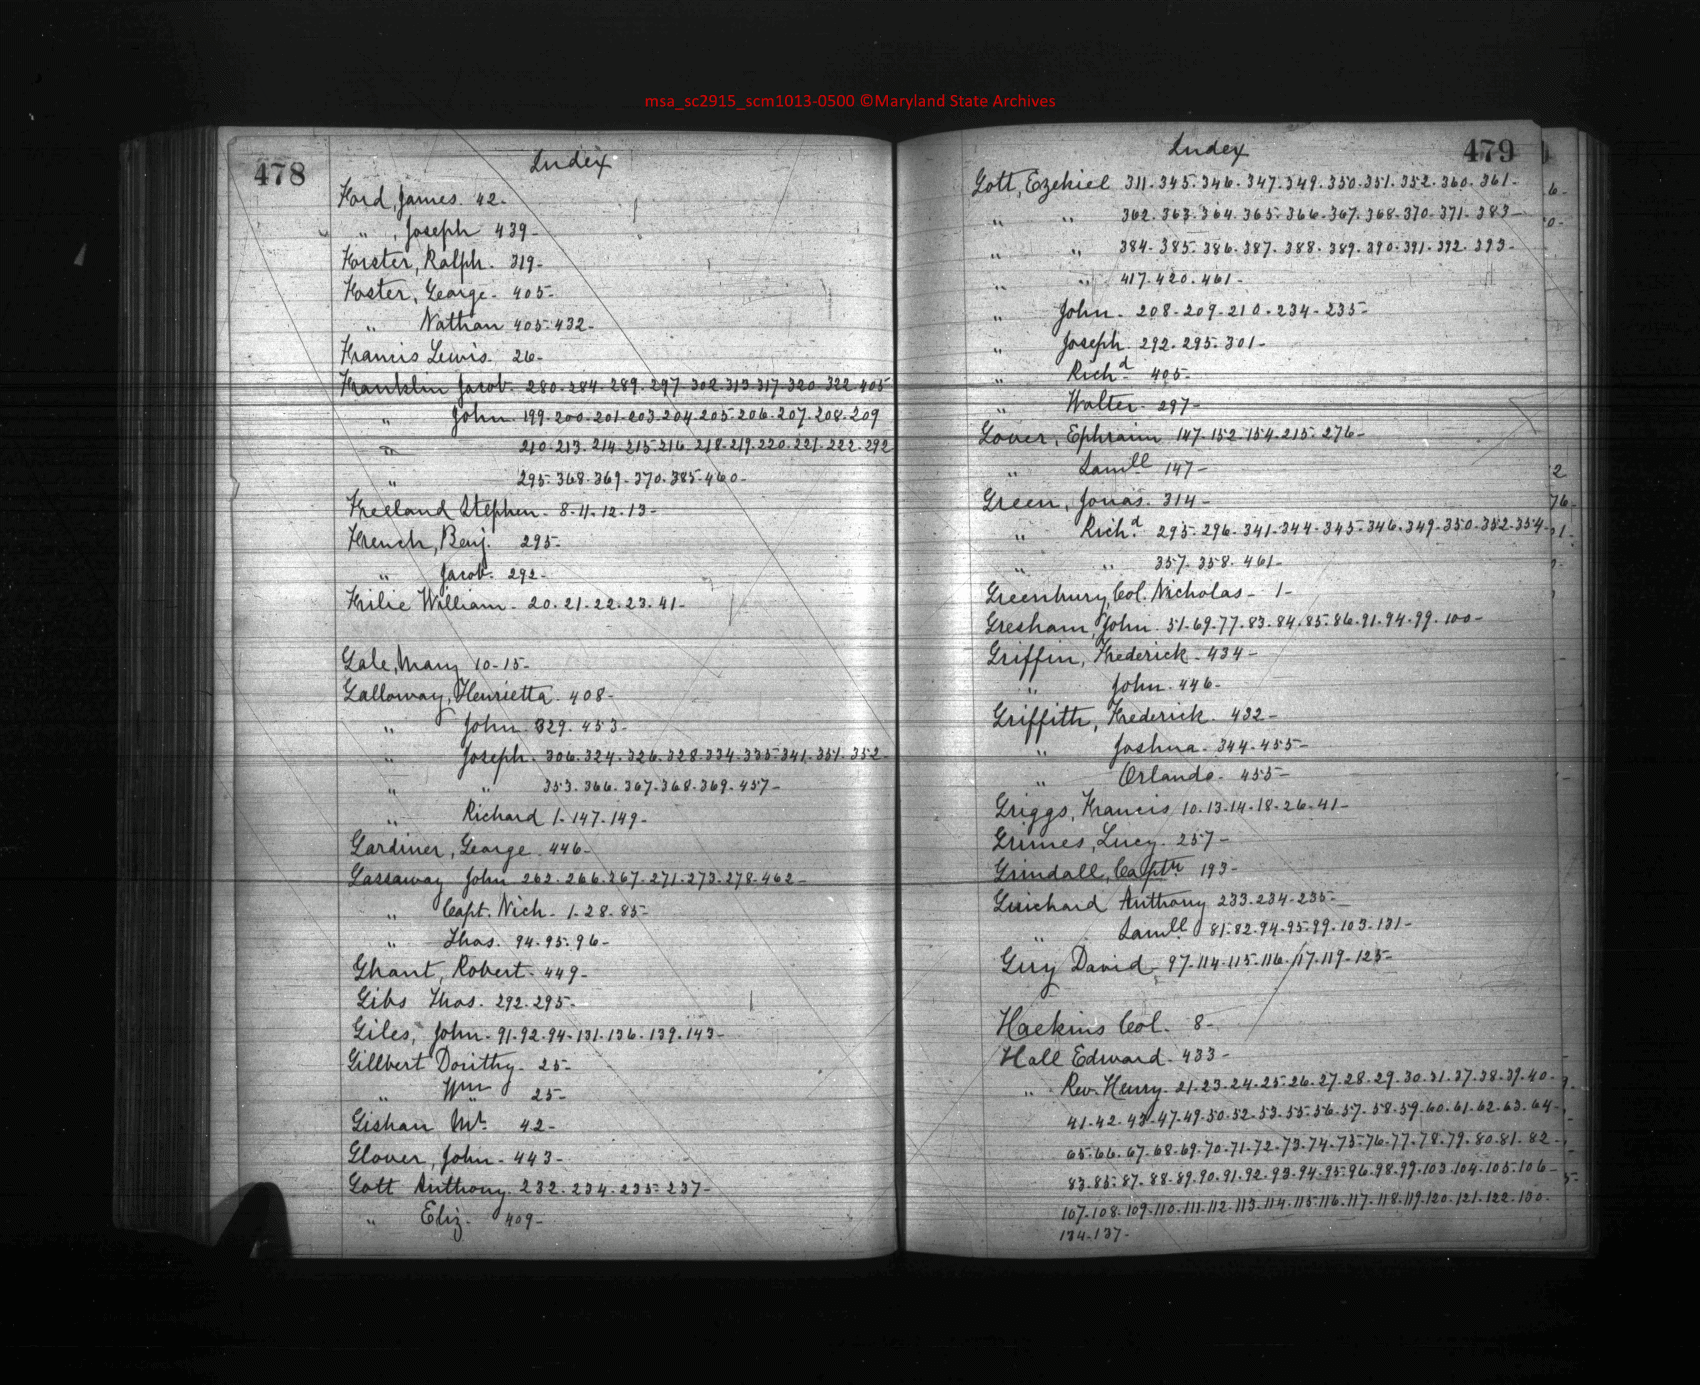 msa_sc2915_scm1013-0500 ©Maryland State Archives
478
Index
Ford, James. 42-
" , Joseph 439-
Forster, Ralph. 319-
Foster, George. 405-
" Nathan 405-432-
Francis Lewis. 26-
Franklin Jacob. 280-284-289-297-302-313-317-320-322-405
" John. 199-200-201-203-204-205-206-207-208-209
" 210-213-214-215-216-218-219-220-221-222-292
" 295-368-369-370-385-460-
Freeland Stephen. 8-11-12-13-
French, Benj. 295-
" Jacob. 292-
Frilie William. 20-21-22-23-41-
Gale, Mary 10-15-
Galloway, Henrietta. 408-
" John. 329-453-
" Joseph. 306-324-326-328-334-335-341-351-352-
" " 353-366-367-368-369-457-
" Richard 1-147-149-
Gardiner, George. 446-
Gassaway John 262-266-267-271-273-278-462-
" Capt. Nich. 1-28-85-
" Thos. 94-95-96-
Ghant, Robert. 449-
Gibs Thos. 292-295-
Giles, John. 91-92-94-131-136-139-143-
Gillbert Dorithy. 25-
" Wm " 25-
Gishan Mr. 42-
Glover, John. 443-
Gott Anthony. 232-234-235-237-
" Eliz. 409-
Index
479
Gott, Ezekiel 311-345-346-347-349-350-351-352-360-361-
" " 362-363-364-365-366-367-368-370-371-383-
" " 384-385-386-387-388-389-390-391-392-393-
" " 417-420-461-
" John. 208-209-210-234-235-
" Joseph. 292-295-301-
" Richd. 405-
" Walter. 297-
Gover, Ephraim 147-152-154-215-276-
" Samll 147-
Green, Jonas. 314-
" Richd. 295-296-341-344-345-346-349-350-352-354-
" " 357-358-461-
Greenbury, Col. Nicholas- 1-
Gresham, John. 51-69-77-83-84-85-86-91-94-99-100-
Griffin, Frederick. 434-
" John. 446-
Griffith, Frederick. 432-
" Joshua. 344-455-
" Orlando. 455-
Griggs, Francis 10-13-14-18-26-41-
Grimes, Lucy. 257-
Grindall, Captn 193-
Guichard Anthony 233-234-235-
" Samll. 81-82-94-95-99-103-131-
Guy David. 97-114-115-116-117-119-125-
Haekins Col. 8-
Hall Edward. 433-
" Rev. Henry. 21-23-24-25-26-27-28-29-30-31-37-38-39-40-
41-42-43-47-49-50-52-53-55-56-57-58-59-60-61-62-63-64-
65-66-67-68-69-70-71-72-73-74-75-76-77-78-79-80-81-82-
83-85-87-88-89-90-91-92-93-94-95-96-98-99-103-104-105-106-
107-108-109-110-111-112-113-114-115-116-117-118-119-120-121-122-130-
134-137-